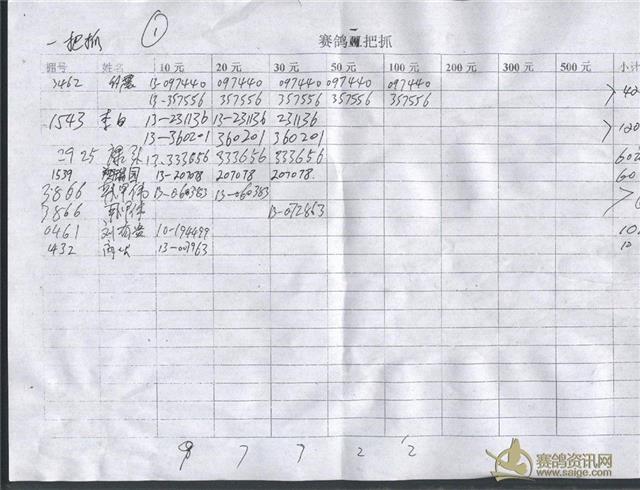 一把抓 ① 赛鸽一把抓
棚号 姓名 10元 20元 30元 50元 100元 200元 300元 500元 小计
3462 13-097440 097440 097440 097440 097440
13-357556 357556 357556 357556 357556
1543 李白 13-231136 13-231136 231136
13-360201 360201 360201 120
2925 13-333656 333656 333656 60
1539 13-207078 207078 207078 60
3866 13-060383 13-060383
3866 13-072853
0461 10-194499 10
432 13-007963 10
9 7 7 2 2
赛鸽资讯网
www.saige.com